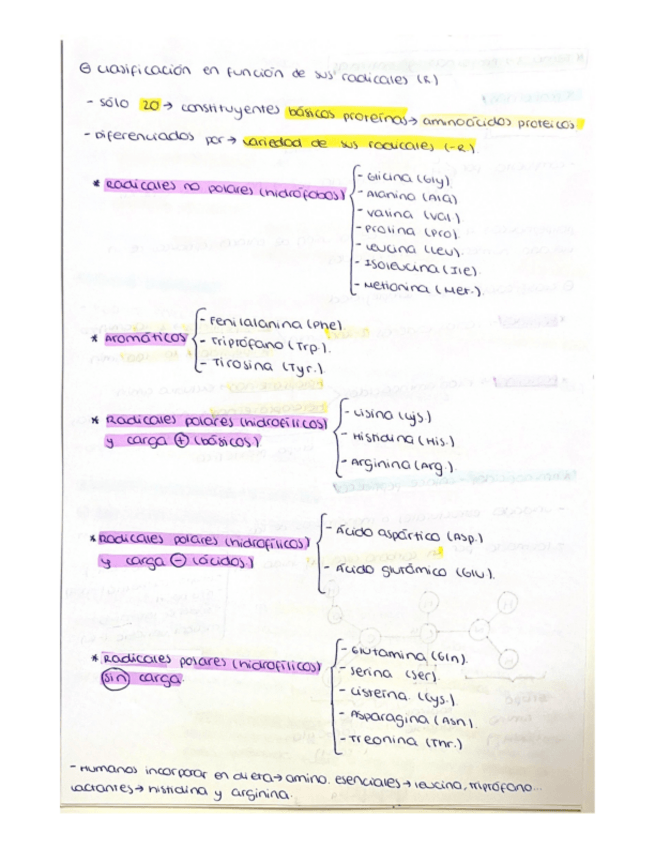 ⊖ Clasificación en función de sus radicales (R)
- sólo 20 → constituyentes básicos proteínas → aminoácidos proteicos
- Diferenciados por → variedad de sus radicales (-R).
* Radicales no polares (hidrófobos)
- Glicina (Gly)
- Alanina (Ala)
- Valina (Val).
- Prolina (Pro).
- Leucina (Leu).
- Isoleucina (Ile).
- Metionina (Met.).
* Aromáticos
- Fenilalanina (Phe)
- Triptófano (Trp.).
- Tirosina (Tyr.)
* Radicales polares (hidrofílicos)
y carga ⊕ (básicos)
- Lisina (Lys)
- Histidina (His.)
- Arginina (Arg.).
* Radicales polares (hidrofílicos)
y carga ⊖ (ácidos)
- Ácido aspártico (Asp.)
- Ácido glutámico (Glu).
* Radicales polares (hidrofílicos)
sin carga.
- Glutamina (Gln).
- Serina (Ser).
- Cisteína. (Cys.).
- Asparagina (Asn).
- Treonina (Thr.)
- Humanos incorporar en dieta → amino. esenciales → leucina, triptófano...
Lactantes → histidina y arginina.